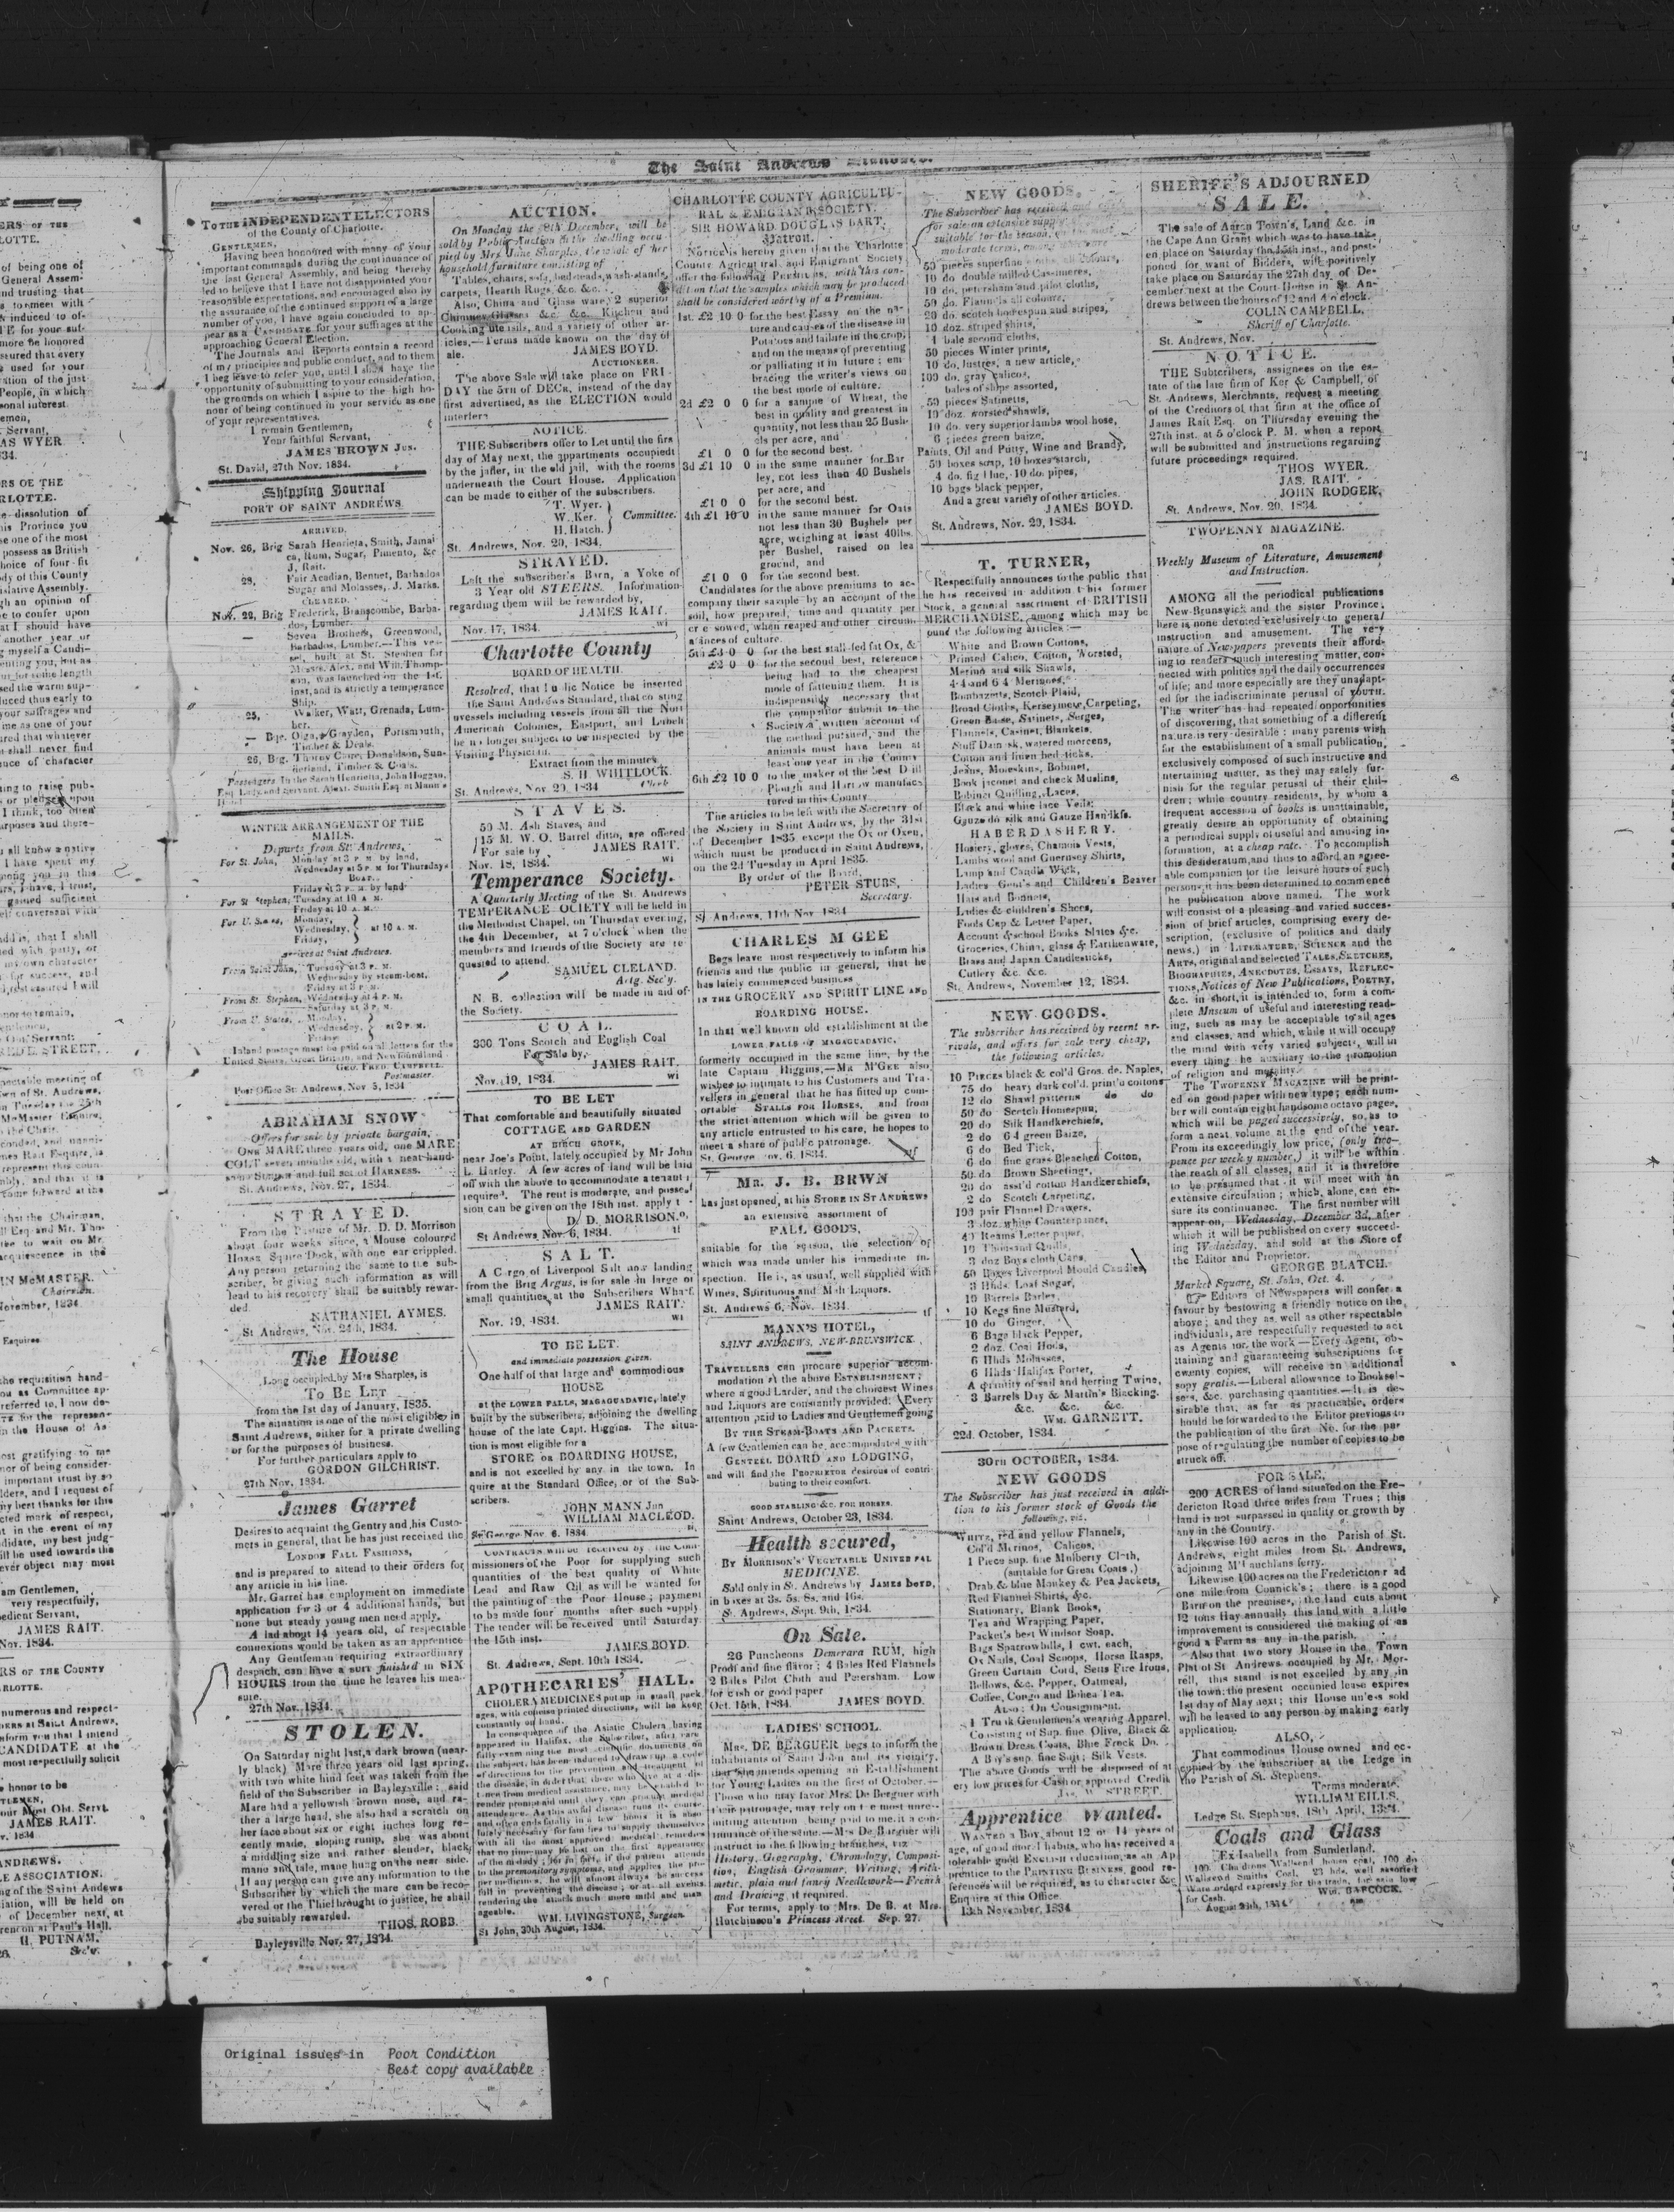 The Saint Andrews Standard.
TO THE INDEPENDENT ELECTORS
of the County of Charlotte.
GENTLEMEN,
Having been honoured with many of your
important commands during the continuance of
the last General Assembly, and being thereby
led to believe that I have not disappointed your
reasonable expectations, and encouraged also by
the assurance of the continued support of a large
number of you, I have again concluded to ap-
pear as a CANDIDATE for your suffrages at the
approaching General Election.
The Journals and Reports contain a record
of my principles and public conduct, and to them
I beg leave to refer you, until I shall have the
opportunity of submitting to your consideration,
the grounds on which I aspire to the high ho-
nour of being continued in your service as one
of your representatives.
I remain Gentlemen,
Your faithful Servant,
JAMES BROWN Jun.
St. David, 27th Nov. 1834.
Shipping Journal
PORT OF SAINT ANDREWS
ARRIVED,
Nov. 26, Brig Sarah Henrieta, Smith, Jamai
ca, Rum, Sugar, Pimento, &c
J. Rait.
28, Fair Acadian, Bennet, Barbados
Sugar and Molasses, J. Marks.
CLEARED,
Nov. 22, Brig Frederick, Branscombe, Barba-
dos, Lumber.
— Seven Brothers, Greenwood,
Barbados, Lumber.—This ves-
sel, built at St. Stephen for
Messrs. Alex. and Will. Thomp-
son, was launched on the 1st.
inst, and is strictly a temperance
Ship.
25, Walker, Watt, Grenada, Lum-
ber.
— Bqe. Olga, Grayden, Portsmouth,
Timber & Deals.
26, Brg. Thorny Close, Donaldson, Sun-
derland, Timber & Deals.
Passengers In the Sarah Henrietta, John Hoggan,
Esq. Lady and Servant. Alext. Smith Esq. at Mann's
Hotel
WINTER ARRANGEMENT OF THE
MAILS.
Departs from St. Andrews,
For St. John, Monday at 3 P. M. by land,
Wednesday at 5 P. M for Thursdays
Boat.
Friday at 3 P. M. by land
For St Stephen, Tuesday at 10 A. M.
Friday at 10 A. M.
For U. States, Monday,
Wednesday, at 10 A. M.
Friday,
Arrives at Saint Andrews.
From Saint John, Tuesday at 3 P. M.
Wednesday by steam-boat,
Friday at 3 P. M.
From St. Stephen, Wednesday at 4 P. M.
Saturday at 3 P. M.
From U. States, Monday,
Wednesday, at 2 P. M.
Friday
Inland postage must be paid on all letters for the
United States, Great Britain, and Newfoundland
GEO. FRED. CAMPBELL.
Postmaster.
Post Office St. Andrews, Nov 5, 1834
ABRAHAM SNOW
Offers for sale by private bargain,
ONE MARE three years old, one MARE
COLT seven months old, with a neat hand-
some SLEIGH and full set of HARNESS.
St. Andrews, Nov. 27, 1834.
STRAYED.
From the Pasture of Mr. D. D. Morrison
about four weeks since, a Mouse coloured
HORSE Square Dock, with one ear crippled.
Any person returning the same to the sub-
scriber, or giving such information as will
lead to his recovery shall be suitably rewar-
ded.
NATHANIEL AYMES.
St Andrews, Nov. 24th, 1834.
The House
Long occupied by Mrs Sharples, is
TO BE LET
from the 1st day of January, 1835.
The situation is one of the most eligible in
Saint Andrews, either for a private dwelling
or for the purposes of business.
For further particulars apply to
GORDON GILCHRIST.
27th Nov. 1834.
James Garret
Desires to acquaint the Gentry and his Custo-
mers in general, that he has just received the
LONDON FALL FASHIONS,
and is prepared to attend to their orders for
any article in his line.
Mr. Garret has employment on immediate
application for 3 or 4 additional hands, but
none but steady young men need apply.
A lad about 14 years old, of respectable
connexions would be taken as an apprentice
Any Gentleman requiring extraordinary
despach, can have a suit finished in SIX
HOURS from the time he leaves his mea-
sure.
27th Nov. 1834.
STOLEN.
On Saturday night last, a dark brown (near-
ly black) Mare three years old last spring,
with two white hind feet was taken from the
field of the Subscriber in Bayleysville: said
Mare had a yellowish brown nose, and ra-
ther a large head, she also had a scratch on
her face about six or eight inches long re-
cently made, sloping rump, she was about
a middling size and rather slender, black
mane and tale, mane hung on the near side.
If any person can give any information to the
Subscriber by which the mare can be reco-
vered or the Thief brought to justice, he shall
be suitably rewarded.
THOS. ROBB.
Bayleysville Nov. 27, 1834.
AUCTION.
On Monday the 8th December, will be
sold by Public Auction in the dwelling occu-
pied by Mrs. Jane Sharples, the whole of her
household furniture consisting of
Tables, chairs, sofa, bedsteads, wash-stands,
carpets, Hearth Rugs, &c. &c.
Also, China and Glass ware, 2 superior
Chimney Glasses &c. &c. Kitchen and
Cooking utensils, and a variety of other ar-
icles,—Terms made known on the day of
ale.
JAMES BOYD.
AUCTIONEER.
The above Sale will take place on FRI-
DAY the 5TH of DECR, instead of the day
first advertised, as the ELECTION would
interfere
NOTICE.
THE Subscribers offer to Let until the firs
day of May next, the appartments occupied
by the jailer, in the old jail, with the rooms
underneath the Court House. Application
can be made to either of the subscribers.
T. Wyer.
W. Ker. Committee.
H. Hatch.
St. Andrews, Nov. 20, 1834.
STRAYED.
Left the subscriber's Barn, a Yoke of
3 Year old STEERS. Information
regarding them will be rewarded by,
JAMES RAIT.
Nov. 17, 1834. wi
Charlotte County
BOARD OF HEALTH.
Resolved, that Public Notice be inserted
the Saint Andrews Standard, that coasting
vessels including vessels from all the Nort
American Colonies, Eastport, and Lubeh
be no longer subject to be inspected by the
Visiting Physician.
Extract from the minutes
S. H. WHITLOCK.
Clerk
St. Andrews, Nov. 20, 1834
STAVES.
50 M. Ash Staves, and
15 M. W. O. Barrel ditto, are offered
For sale by JAMES RAIT.
Nov. 18, 1834. wi
Temperance Society.
A Quarterly Meeting of the St. Andrews
TEMPERANCE OCIETY will be held in
the Methodist Chapel, on Thursday evening,
the 4th December, at 7 o'clock when the
members and friends of the Society are re-
quested to attend.
SAMUEL CLELAND.
Actg. Sec'y.
N. B. collection will be made in aid of
the Society.
COAL.
300 Tons Scotch and English Coal
For Sale by,
JAMES RAIT.
Nov. 19, 1834. wi
TO BE LET
That comfortable and beautifully situated
COTTAGE AND GARDEN
AT BIRCH GROVE,
near Joe's Point, lately occupied by Mr John
L. Harley. A few acres of land will be laid
off with the above to accommodate a tenant i
required. The rent is moderate, and posses
sion can be given on the 18th inst. apply t
D. D. MORRISON.
St Andrews Nov. 6, 1834. tf
SALT.
A Cargo of Liverpool Salt now landing
from the Brig Argus, is for sale in large or
small quantities, at the Subscribers Wharf.
JAMES RAIT.
Nov. 19, 1834. wi
TO BE LET.
and immediate possession given.
One half of that large and commodious
HOUSE
at the LOWER FALLS, MAGAGUADAVIC, lately
built by the subscribers, adjoining the dwelling
house of the late Capt. Higgins. The situa-
tion is most eligible for a
STORE OR BOARDING HOUSE,
and is not excelled by any in the town. In
quire at the Standard Office, or of the Sub-
scribers.
JOHN MANN Jun
WILLIAM MACLEOD.
St. George Nov. 6. 1834.
CONTRACTS will be received by the Com-
missioners of the Poor for supplying such
quantities of the best quality of White
Lead and Raw Oil as will be wanted for
the painting of the Poor House; payment
to be made four months after such supply
The tender will be received until Saturday
the 15th inst.
JAMES BOYD.
St. Andrews, Sept. 10th 1834.
APOTHECARIES' HALL.
CHOLERA MEDICINES put up in small pack
ages, with concise printed directions, will be kept
constantly on hand.
In consequence of the Asiatic Cholera having
appeared in Halifax, the Subscriber, after care
fully examining the most scientific documents on
the subject, has been induced to draw up a code
of directions for the prevention and treatment of
the disease, in order that those who live at a dis-
tance from medical assistance, may be enabled to
render prompt aid until they can procure medical
attendence. As this awful disease runs its course
and often ends fatally in a few hours it is abso
lutely necessary for families to supply themselves
with all the most approved medical remedies
that no time may be lost on the first appearance
of the malady; for in fact, if the patient attends
to the premonitory symptoms, and applies the pro
per medicines, he will almost always be success
full in preventing the disease; or at all events
rendering the attack much more mild and man
ageable.
WM. LIVINGSTONE, Surgeon
St John, 30th August, 1834.
CHARLOTTE COUNTY AGRICULTU-
RAL & EMIGRANT SOCIETY.
SIR HOWARD DOUGLAS BART.
Patron.
Notice is hereby given that the Charlotte
County Agricultural and Emigrant Society
offer the following Premiums, with this con-
dition that the samples which may be produced
shall be considered worthy of a Premium.
1st. £2 10 0 for the best Essay on the na-
ture and causes of the disease in
Potatoes and failure in the crop,
and on the means of preventing
or palliating it in future; em
bracing the writer's views on
the best mode of culture.
2d £2 0 0 for a sample of Wheat, the
best in quality and greatest in
quantity, not less than 25 Bush-
els per acre, and
£1 0 0 for the second best.
3d £1 10 0 in the same manner for Bar
ley, not less than 40 Bushels
per acre, and
£1 0 0 for the second best.
4th £1 10 0 in the same manner for Oats
not less than 30 Bushels per
acre, weighing at least 40lbs.
per Bushel, raised on lea
ground, and
£1 0 0 for the second best.
Candidates for the above premiums to ac-
company their sample by an account of the
soil, how prepared, time and quantity per
cre sowed, when reaped and other circum
stances of culture.
5th £3 0 0 for the best stall-fed fat Ox, &
£2 0 0 for the second best, reference
being had to the cheapest
mode of fattening them. It is
indispensibly necessary that
the competitor submit to the
Society a written account of
the method pursued, and the
animals must have been at
least one year in the County
6th £2 10 0 to the maker of the best Drill
Plough and Harrow manufac
tured in this County
The articles to be left with the Secretary of
the Society in Saint Andrews, by the 31st
of December 1835 except the Ox or Oxen,
which must be produced in Saint Andrews,
on the 2d Tuesday in April 1835.
By order of the Board,
PETER STUBS,
Secretary.
St Andrews, 11th Nov 1834
CHARLES M GEE
Begs leave most respectively to inform his
friends and the public in general, that he
has lately commenced business
IN THE GROCERY AND SPIRIT LINE AND
BOARDING HOUSE.
In that well known old establishment at the
LOWER FALLS OF MAGAGUADAVIC,
formerly occupied in the same line, by the
late Captain Higgins,—MR M'GEE also
wishes to intimate to his Customers and Tra-
vellers in general that he has fitted up com-
ortable STALLS FOR HORSES, and from
the strict attention which will be given to
any article entrusted to his care, he hopes to
meet a share of public patronage.
St. George nov. 6. 1834. tf
MR. J. B. BRWN
has just opened, at his STORE IN ST ANDREWS
an extensive assortment of
FALL GOODS,
suitable for the season, the selection of
which was made under his immedite in-
spection. He is, as usual, well supplied with
Wines, Spirituous and Malt Liquors.
St. Andrews 6, Nov. 1834. tf
MANN'S HOTEL,
SAINT ANDREWS, NEW-BRUNSWICK.
TRAVELLERS can procure superior accom-
modation at the above ESTABLISHMENT;
where a good Larder, and the choicest Wines
and Liquors are constantly provided. Every
attention paid to Ladies and Gentlemen going
BY THE STEAM-BOATS AND PACKETS.
A few Gentlemen can be accommodated with
GENTEEL BOARD AND LODGING,
and will find the PROPRIETOR desirous of contri-
buting to their comfort.
GOOD STABLING &c. FOR HORSES.
Saint Andrews, October 23, 1834.
Health secured,
BY MORRISON'S VEGETABLE UNIVERSAL
MEDICINE.
Sold only in St. Andrews by JAMES BOYD,
in boxes at 3s. 5s. 8s. and 16s.
St. Andrews, Sept. 9th, 1834.
On Sale.
26 Puncheons Demerara RUM, high
Proof and fine flavor; 4 Bales Red Flannels
2 Bales Pilot Cloth and Petersham. Low
for cash or good paper
Oct. 15th, 1834. JAMES BOYD.
LADIES' SCHOOL.
MRS. DE BERGUER begs to inform the
inhabitants of Saint John and its vicinity,
that she intends opening an Establishment
for Young Ladies on the first of October.—
Those who may favor Mrs. De Berguer with
their patronage, may rely on the most unre-
mitting attention being paid to merit a con-
tinuance of the same.—Mrs De Berguer will
instruct in the following branches, viz
History, Geography, Chronology, Composi-
tion, English Grammar, Writing, Arith-
metic, plain and fancy Needlework—French
and Drawing, if required.
For terms, apply to Mrs. De B. at Mrs.
Hutchinson's Princess street. Sep. 27.
NEW GOODS.
The Subscriber has received and offers
for sale an extensive supply
suitable for the season, on the most
moderate terms, among which are
50 pieces superfine cloths, all colours,
10 do double milled Cassimeres,
10 do. petersham and pilot cloths,
50 do. Flannels all colours,
20 do. scotch homespun and stripes,
10 doz. striped shirts,
1 bale second cloths,
50 pieces Winter prints,
10 do. lustres, a new article,
100 do. gray calicos,
bales of slops assorted,
50 pieces Satinetts,
10 doz. worsted shawls,
10 do. very superior lambs wool hose,
6 pieces green baize,
Paints, Oil and Putty, Wine and Brandy,
50 boxes soap, 10 boxes starch,
4 do. fig blue, 10 do. pipes,
10 bags black pepper,
And a great variety of other articles.
JAMES BOYD.
St. Andrews, Nov. 20, 1834.
T. TURNER,
Respectfully announces to the public that
he has received in addition to his former
Stock, a general assortment of BRITISH
MERCHANDISE, among which may be
found the following articles:—
White and Brown Cottons,
Printed Calico, Cotton, Worsted,
Merino and silk Shawls,
4-4 and 6-4 Merinoes,
Bombazetts, Scotch Plaid,
Broad Cloths, Kerseymere, Carpeting,
Green Baise, Satinets, Serges,
Flannels, Casinet, Blankets,
Stuff Damask, watered mereens,
Cotton and linen bed-ticks,
Jeans, Moleskins, Bobinet,
Book jaconet and check Muslins,
Bobinet Quilling, Laces,
Black and white lace Veils,
Gauze do silk and Gauze Handkfs.
HABERDASHERY.
Hosiery, gloves, Chamois Vests,
Lambs wool and Guernsey Shirts,
Lamp and Candle Wick,
Ladies Gent's and Children's Beaver
Hats and Bonnets,
Ladies & children's Shoes,
Fools Cap & Letter Paper,
Account & school Books Slates &c.
Groceries, China, glass & Earthenware,
Brass and Japan Candlesticks,
Cutlery &c. &c.
St. Andrews, November 12, 1834.
NEW GOODS.
The subscriber has received by recent ar-
rivals, and offers for sale very cheap,
the following articles.
10 PIECES black & col'd Gros. de. Naples,
75 do heavy dark col'd. print'd cottons
12 do Shawl patterns do do
50 do Scotch Homespun,
20 do Silk Handkerchiefs,
2 do 6-4 green Baize,
6 do Bed Tick,
6 do fine grass Bleached Cotton,
50 do Brown Sheetings,
20 do asst'd cotton Handkerchiefs,
2 do Scotch Carpeting,
100 pair Flannel Drawers,
3 doz. white Counterpanes,
40 Reams Letter paper,
10 Thousand Quills,
3 doz Boys cloth Caps,
50 Boxes Liverpool Mould Candles,
3 Hhds. Loaf Sugar,
10 Barrels Barley,
10 Kegs fine Mustard,
10 do Ginger,
6 Bags black Pepper,
2 doz. Coal Hods,
6 Hhds Molasses,
6 Hhds Halifax Porter,
A quantity of sail and herring Twine,
3 Barrels Day & Martin's Blacking.
&c. &c. &c.
WM. GARNETT.
22d. October, 1834.
30TH OCTOBER, 1834.
NEW GOODS
The Subscriber has just received in addi-
tion to his former stock of Goods the
following, viz.
WHITE, red and yellow Flannels,
Col'd Merinos, Calicos,
1 Piece sup. fine Mulberry Cloth,
(suitable for Great Coats,)
Drab & blue Monkey & Pea Jackets,
Red Flannel Shirts, &c.
Stationary, Blank Books,
Tea and Wrapping Paper,
Packet's best Windsor Soap,
Bags Sparrowbills, 1 cwt. each,
Ox Nails, Coal Scoops, Horse Rasps,
Green Curtain Cord, Setts Fire Irons,
Bellows, &c. Pepper, Oatmeal,
Coffee, Congo and Bohea Tea.
ALSO: On Consignment,
1 Trunk Gentlemen's wearing Apparel,
Consisting of Sup. fine Olive, Black &
Brown Dress Coats, Blue Frock Do.
A Boy's sup. fine Suit; Silk Vests.
The above Goods will be disposed of at
ery low prices for Cash or approved Credit
JAS. W. STREET.
Apprentice Wanted.
WANTED a Boy, about 12 or 14 years of
age, of good moral habits, who has received a
tolerable good ENGLISH education, as an Ap
prentice to the PRINTING BUSINESS, good re-
ferences will be required, as to character &c
Enquire at this Office.
13th November, 1834
SHERIFF'S ADJOURNED
SALE.
The sale of Aaron Town's, Land &c. in
the Cape Ann Grant which was to have tak-
en place on Saturday the 15th inst., and post-
poned for want of Bidders, will positively
take place on Saturday the 27th day of De-
cember next at the Court-House in St. An-
drews between the hours of 12 and 4 o'clock.
COLIN CAMPBELL,
Sheriff of Charlotte.
St. Andrews, Nov.
NOTICE.
THE Subscribers, assignees on the es-
tate of the late firm of Ker & Campbell, of
St. Andrews, Merchants, request a meeting
of the Creditors of that firm at the office of
James Rait Esq. on Thursday evening the
27th inst. at 5 o'clock P. M. when a report
will be submitted and instructions regarding
future proceedings required.
THOS WYER.
JAS. RAIT.
JOHN RODGER.
St. Andrews, Nov. 20, 1834.
TWOPENNY MAGAZINE.
OR
Weekly Museum of Literature, Amusement
and Instruction.
AMONG all the periodical publications
New-Brunswick and the sister Province,
here is none devoted exclusively to general
instruction and amusement. The very
nature of Newspapers prevents their afford-
ing to readers much interesting matter, con-
nected with politics and the daily occurrences
of life; and more especially are they unadapt-
ed for the indiscriminate perusal of YOUTH.
The writer has had repeated opportunities
of discovering, that something of a different
nature is very desirable: many parents wish
for the establishment of a small publication,
exclusively composed of such instructive and
ntertaining matter, as they may safely fur-
nish for the regular perusal of their chil-
dren; while country residents, by whom a
frequent accession of books is unattainable,
greatly desire an opportunity of obtaining
a periodical supply of useful and amusing in-
formation, at a cheap rate. To accomplish
this desideratum, and thus to afford an agree-
able companion for the leisure hours of such
persons, it has been determined to commence
he publication above named. The work
will consist of a pleasing and varied succes-
sion of brief articles, comprising every de-
scription, (exclusive of politics and daily
news,) in LITERATURE, SCIENCE and the
ARTS, original and selected TALES, SKETCHES,
BIOGRAPHIES, ANECDOTES, ESSAYS, REFLEC-
TIONS, Notices of New Publications, POETRY,
&c. in short, it is intended to, form a com-
plete Museum of useful and interesting read-
ing, such as may be acceptable to all ages
and classes, and which, while it will occupy
the mind with very varied subjects, will in
every thing be auxiliary to the promotion
of religion and morality.
The TWOPENNY MAGAZINE will be print-
ed on good paper with new type; each num-
ber will contain eight handsome octavo pages,
which will be paged successively, so as to
form a neat volume at the end of the year.
From its exceedingly low price, (only two-
pence per weekly number,) it will be within
the reach of all classes, and it is therefore
to be presumed that it will meet with an
extensive circulation; which, alone, can en-
sure its continuance. The first number will
appear on, Wednesday, December 3d, after
which it will be published on every succeed-
ing Wednesday, and sold at the Store of
the Editor and Proprietor.
GEORGE BLATCH.
Market Square, St. John, Oct. 4.
☞ Editors of Newspapers will confer a
favour by bestowing a friendly notice on the
above; and they as well as other rspectable
individuals, are respectfully requested to act
as Agents for the work—Every Agent, ob-
ttaining and guaranteeing subscriptions for
cwenty copies, will receive an additional
sopy gratis.—Liberal allowance to Booksel-
sers, &c. purchasing quantities.—It is de-
sirable that, as far as practicable, orders
hould be forwarded to the Editor previous to
the publication of the first No. for the pur
pose of regulating the number of copies to be
struck off.
FOR SALE,
200 ACRES of land situated on the Fre-
dericton Road three miles from Trues; this
land is not surpassed in quality or growth by
any in the Country.
Likewise 100 acres in the Parish of St.
Andrews, eight miles from St. Andrews,
adjoining M'Lauchlans ferry.
Likewise 100 acres on the Fredericton r ad
one mile from Connick's; there is a good
Barn on the premises, the land cuts about
12 tons Hay annually this land with a little
improvement is considered the making of as
good a Farm as any in the parish.
Also that two story House in the Town
Plat of St Andrews occupied by Mr. Mor-
rell, this stand is not excelled by any in
the town: the present occupied lease expires
1st day of May next; this House unless sold
will be leased to any person by making early
application.
ALSO,
That commodious House owned and oc-
cupied by the subscriber at the Ledge in
the Parish of St. Stephens.
Terms moderate.
WILLIAM EILLS.
Ledge St. Stephens, 18th April, 1834.
Coals and Glass
Ex Isabella from Sunderland.
100 Chaldrons Wallsend house coal, 100 do
Wallsend Smiths Coal, 23 hds. well assorted
Ware ordered expressly for the trade, for sale low
for Cash. WM. BABCOCK.
August 24th, 1834
Original issues in Poor Condition
Best copy available